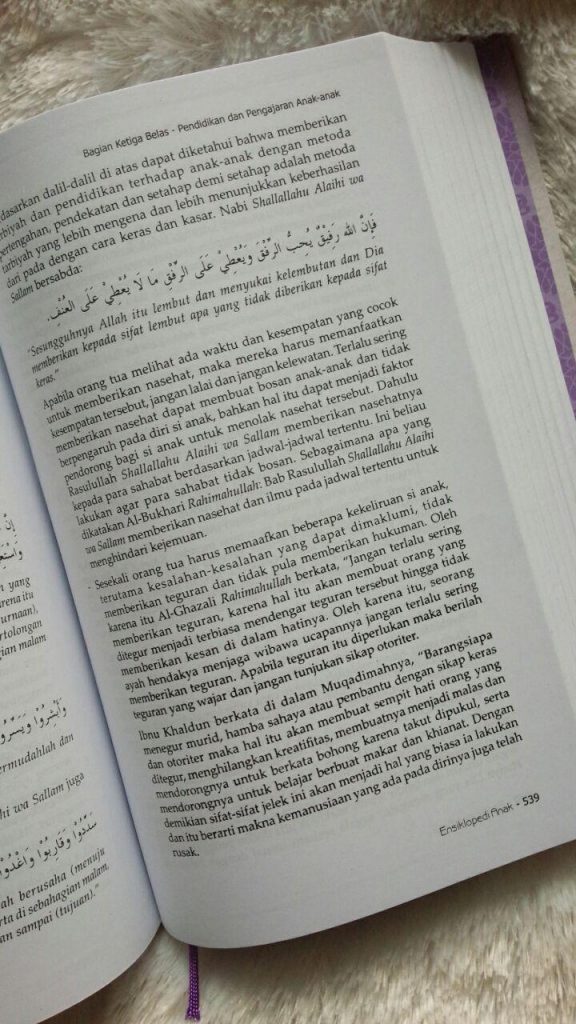 إِنَّ
وَاسْتَعِ
yang
arena itu
urnaan),
rtolongan
agian malam
وَأَبْشِرُوا وَيَسِّرُوا
ermudahlah dan
hi wa Sallam juga
سَدِّدُوا وَقَارِبُوا وَاغْدُوا
ah berusaha (menuju
rta di sebahagian malam.
an sampai (tujuan)."
Bagian Ketiga Belas - Pendidikan dan Pengajaran Anak-anak
dasarkan dalil-dalil di atas dapat diketahui bahwa memberikan
rbiyah dan pendidikan terhadap anak-anak dengan metoda
pertengahan, pendekatan dan setahap demi setahap adalah metoda
tarbiyah yang lebih mengena dan lebih menunjukkan keberhasilan
dari pada dengan cara keras dan kasar. Nabi Shallallahu Alaihi wa
Sallam bersabda:
فَإِنَّ اللهَ رَفِيْقٌ يُحِبُّ الرِّفْقَ وَيُعْطِيْ عَلَى الرِّفْقِ مَا لَا يُعْطِيْ عَلَى الْعُنْفِ.
"Sesungguhnya Allah itu lembut dan menyukai kelembutan dan Dia
memberikan kepada sifat lembut apa yang tidak diberikan kepada sifat
keras."
Apabila orang tua melihat ada waktu dan kesempatan yang cocok
untuk memberikan nasehat, maka mereka harus memanfaatkan
kesempatan tersebut, jangan lalai dan jangan kelewatan. Terlalu sering
memberikan nasehat dapat membuat bosan anak-anak dan tidak
berpengaruh pada diri si anak, bahkan hal itu dapat menjadi faktor
pendorong bagi si anak untuk menolak nasehat tersebut. Dahulu
Rasulullah Shallallahu Alaihi wa Sallam memberikan nasehatnya
kepada para sahabat berdasarkan jadwal-jadwal tertentu. Ini beliau
lakukan agar para sahabat tidak bosan. Sebagaimana apa yang
dikatakan Al-Bukhari Rahimahullah: Bab Rasulullah Shallallahu Alaihi
wa Sallam memberikan nasehat dan ilmu pada jadwal tertentu untuk
menghindari kejemuan.
- Sesekali orang tua harus memaafkan beberapa kekeliruan si anak,
terutama kesalahan-kesalahan yang dapat dimaklumi, tidak
memberikan teguran dan tidak pula memberikan hukuman. Oleh
karena itu Al-Ghazali Rahimahullah berkata, "Jangan terlalu sering
memberikan teguran, karena hal itu akan membuat orang yang
ditegur menjadi terbiasa mendengar teguran tersebut hingga tidak
memberikan kesan di dalam hatinya. Oleh karena itu, seorang
ayah hendaknya menjaga wibawa ucapannya jangan terlalu sering
memberikan teguran. Apabila teguran itu diperlukan maka berilah
teguran yang wajar dan jangan tunjukan sikap otoriter.
Ibnu Khaldun berkata di dalam Muqadimahnya, "Barangsiapa
menegur murid, hamba sahaya atau pembantu dengan sikap keras
dan otoriter maka hal itu akan membuat sempit hati orang yang
ditegur, menghilangkan kreatifitas, membuatnya menjadi malas dan
mendorongnya untuk berkata bohong karena takut dipukul, serta
mendorongnya untuk belajar berbuat makar dan khianat. Dengan
demikian sifat-sifat jelek ini akan menjadi hal yang biasa ia lakukan
dan itu berarti makna kemanusiaan yang ada pada dirinya juga telah
rusak.
Ensiklopedi Anak - 539